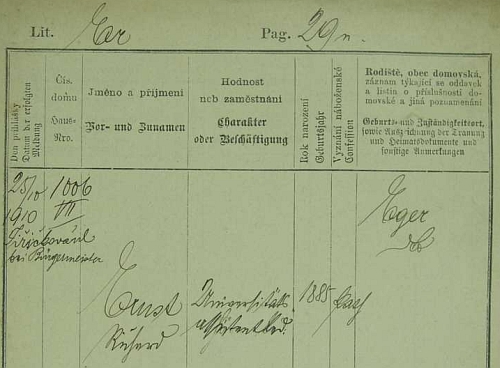 Lit. Er Pag. 29
Den přihlášky
Datum der erfolgten
Meldung
Čís.
domu
Haus-
Nro.
Jméno a příjmení
Vor- und Zunamen
Hodnost
neb zaměstnání
Charakter
oder Beschäftigung
Rok narození
Geburtsjahr
Vyznání náboženské
Confession
Rodiště, obec domovská,
záznam týkající se oddavek
a listin o příslušnosti do-
movské a jiná poznamenání
Geburts- und Zuständigkeitsort,
sowie Aufzeichnung der Trauung
und Heimatsdokumente und
sonstige Anmerkungen
25/10 1006
1910 VII
bei Bürgermeister
Eger
Ernst Universitäts 1885